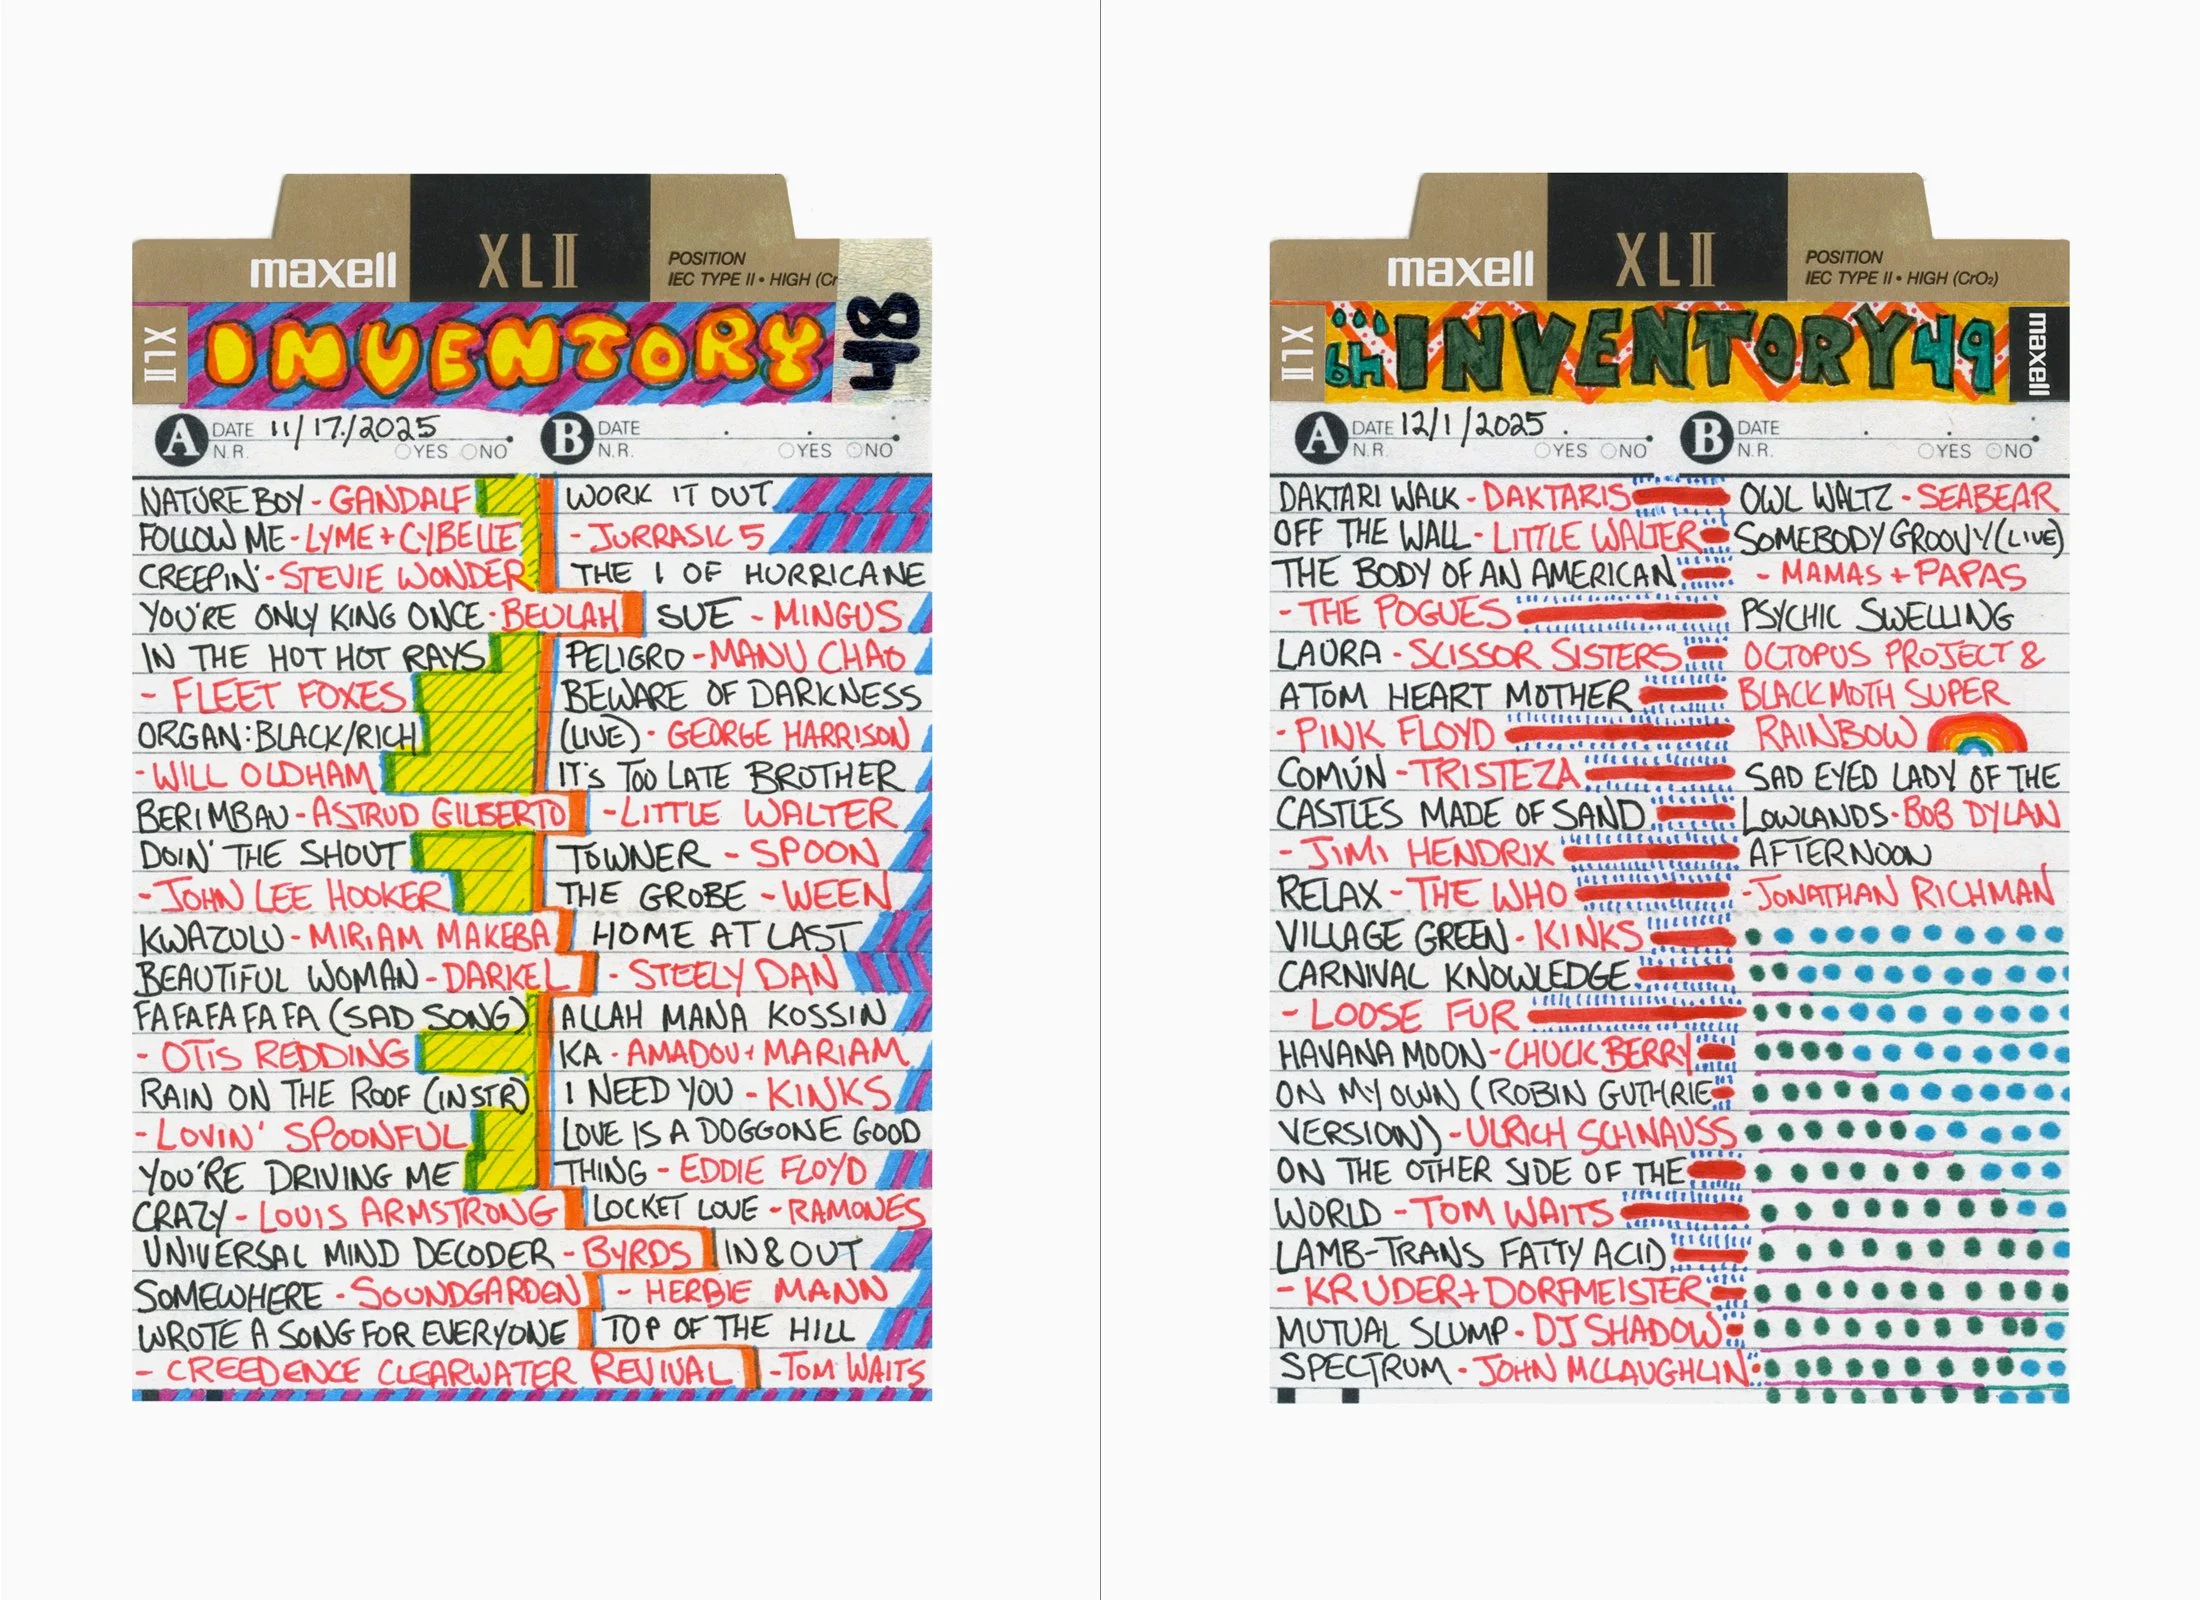 maxell
XLII
POSITION
IEC TYPE II • HIGH (Cr
XLII
INVENTORY
48
A DATE 11/17/2025
N.R. YES NO
B DATE
N.R. YES NO
NATURE BOY - GANDALF
FOLLOW ME - LYME + CYBELLE
CREEPIN' - STEVIE WONDER
YOU'RE ONLY KING ONCE - BEULAH
IN THE HOT HOT RAYS
- FLEET FOXES
ORGAN: BLACK/RICH
- WILL OLDHAM
BERIMBAU - ASTRUD GILBERTO
DOIN' THE SHOUT
- JOHN LEE HOOKER
KWAZULU - MIRIAM MAKEBA
BEAUTIFUL WOMAN - DARKEL
FA FA FA FA FA (SAD SONG)
- OTIS REDDING
RAIN ON THE ROOF (INSTR)
- LOVIN' SPOONFUL
YOU'RE DRIVING ME
CRAZY - LOUIS ARMSTRONG
UNIVERSAL MIND DECODER - BYRDS
SOMEWHERE - SOUNDGARDEN
WROTE A SONG FOR EVERYONE
- CREEDENCE CLEARWATER REVIVAL
WORK IT OUT
- JURRASIC 5
THE I OF HURRICANE
SUE - MINGUS
PELIGRO - MANU CHAO
BEWARE OF DARKNESS
(LIVE) - GEORGE HARRISON
IT'S TOO LATE BROTHER
- LITTLE WALTER
TOWNER - SPOON
THE GROBE - WEEN
HOME AT LAST
- STEELY DAN
ALLAH MANA KOSSIN
KA - AMADOU + MARIAM
I NEED YOU - KINKS
LOVE IS A DOGGONE GOOD
THING - EDDIE FLOYD
LOCKET LOVE - RAMONES
IN & OUT
- HERBIE MANN
TOP OF THE HILL
- TOM WAITS
maxell
XLII
POSITION
IEC TYPE II • HIGH (CrO₂)
XLII
INVENTORY 49
maxell
A DATE 12/1/2025
N.R. YES NO
B DATE
N.R. YES NO
DAKTARI WALK - DAKTARIS
OFF THE WALL - LITTLE WALTER
THE BODY OF AN AMERICAN
- THE POGUES
LAURA - SCISSOR SISTERS
ATOM HEART MOTHER
- PINK FLOYD
COMÚN - TRISTEZA
CASTLES MADE OF SAND
- JIMI HENDRIX
RELAX - THE WHO
VILLAGE GREEN - KINKS
CARNIVAL KNOWLEDGE
- LOOSE FUR
HAVANA MOON - CHUCK BERRY
ON MY OWN (ROBIN GUTHRIE
VERSION) - ULRICH SCHNAUSS
ON THE OTHER SIDE OF THE
WORLD - TOM WAITS
LAMB-TRANS FATTY ACID
- KRUDER + DORFMEISTER
MUTUAL SLUMP - DJ SHADOW
SPECTRUM - JOHN MCLAUGHLIN
OWL WALTZ - SEABEAR
SOMEBODY GROOVY (LIVE)
- MAMAS + PAPAS
PSYCHIC SWELLING
OCTOPUS PROJECT &
BLACK MOTH SUPER
RAINBOW
SAD EYED LADY OF THE
LOWLANDS - BOB DYLAN
AFTERNOON
- JONATHAN RICHMAN